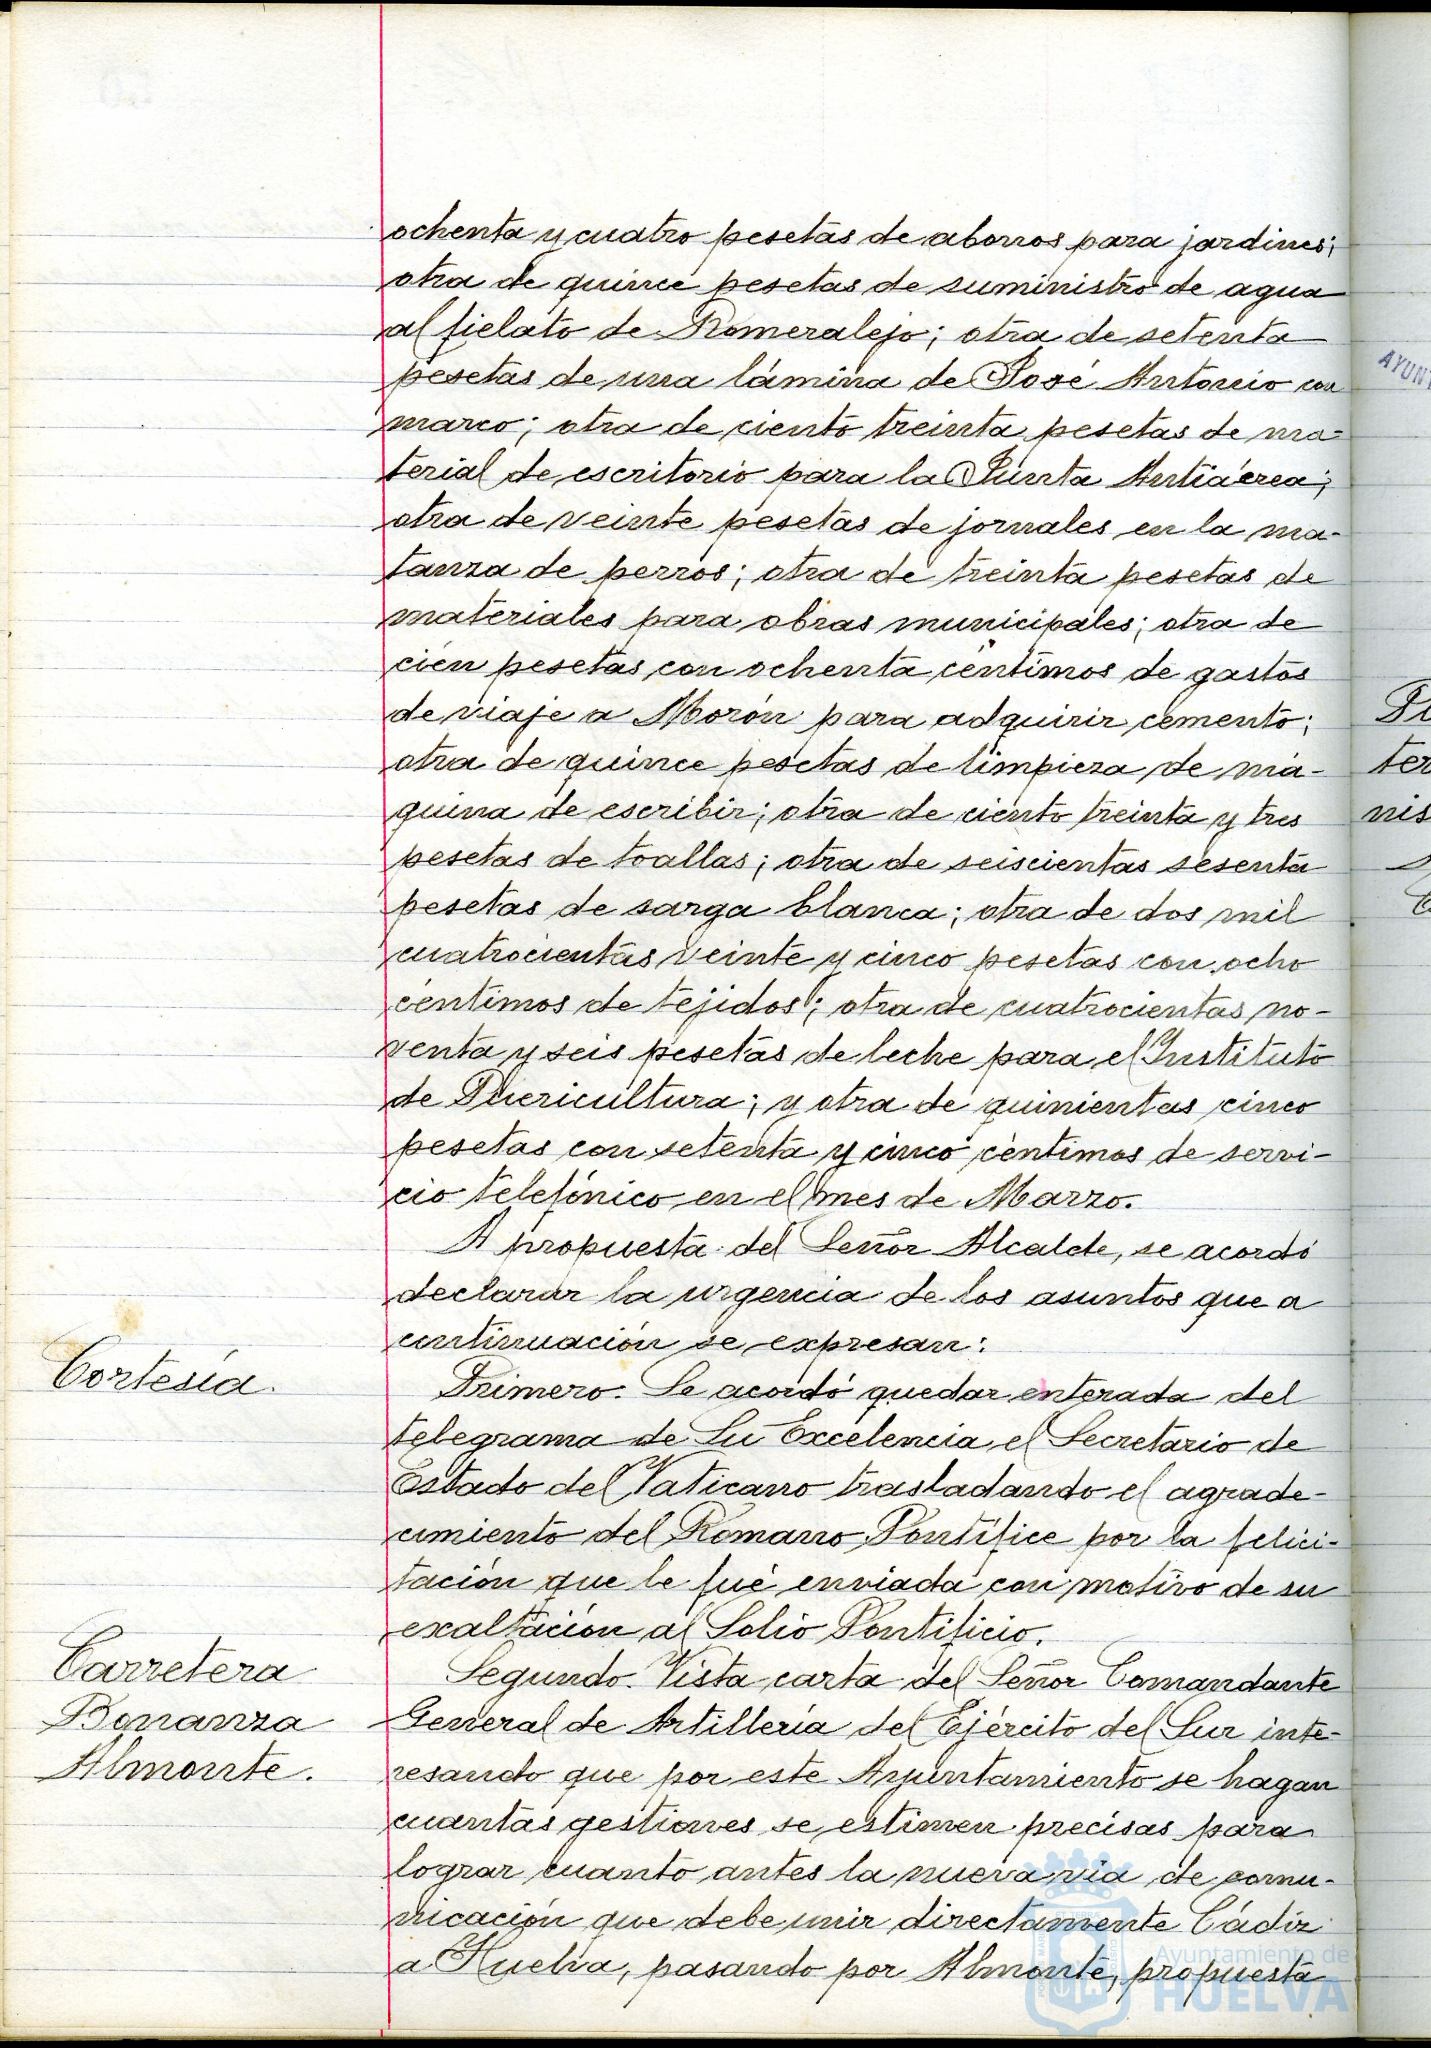 ochenta y cuatro pesetas de abonos para jardines;
otra de quince pesetas de suministro de agua
al fielato de Romeralejo; otra de setenta
pesetas de una lámina de José Antonio con
marco; otra de ciento treinta pesetas de ma-
terial de escritorio para la Junta Antiaérea;
otra de veinte pesetas de jornales en la ma-
tanza de perros; otra de treinta pesetas de
materiales para obras municipales; otra de
cien pesetas con ochenta centimos de gastos
de viaje a Morón para adquirir cemento;
otra de quince pesetas de limpieza de má-
quina de escribir; otra de ciento treinta y tres
pesetas de toallas; otra de seiscientas sesenta
pesetas de sarga blanca; otra de dos mil
cuatrocientas veinte y cinco pesetas con ocho
centimos de tejidos; otra de cuatrocientas no-
venta y seis pesetas de leche para el Instituto
de Puericultura; y otra de quinientas cinco
pesetas con setenta y cinco centimos de servi-
cio telefónico en el mes de Marzo.
A propuesta del Señor Alcalde, se acordó
declarar la urgencia de los asuntos que a
continuación se expresan:
Cortesía.
Primero. Se acordó quedar enterada del
telegrama de Su Excelencia el Secretario de
Estado del Vaticano trasladando el agrade-
cimiento del Romano Pontífice por la felici-
tación que le fué enviada con motivo de su
exaltación al Solio Pontificio.
Carretera
Bonanza
Almonte.
Segundo. Vista carta del Señor Comandante
General de Artillería del Ejército del Sur inte-
resando que por este Ayuntamiento se hagan
cuantas gestiones se estimen precisas para
lograr cuanto antes la nueva vía de comu-
nicación que debe unir directamente Cádiz
a Huelva, pasando por Almonte, propuesta
Ayuntamiento de
HUELVA
AYUNT
ter
nis